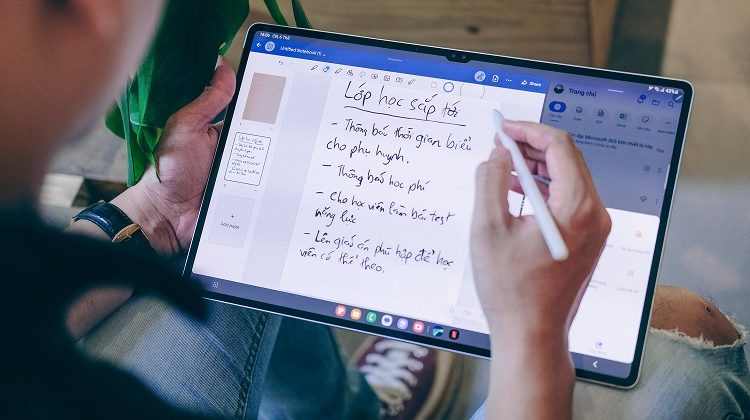 Untitled Notebook (1)
Share
Lớp học sắp tới
- Thông báo thời gian biểu
cho phụ huynh.
- Thông báo học phí
- Cho học viên làm bài test
năng lực
- Lên giáo án phù hợp để học
viên có thể theo.
Add page
43%
Trang chủ
Microsoft 365 trên thiết bị này